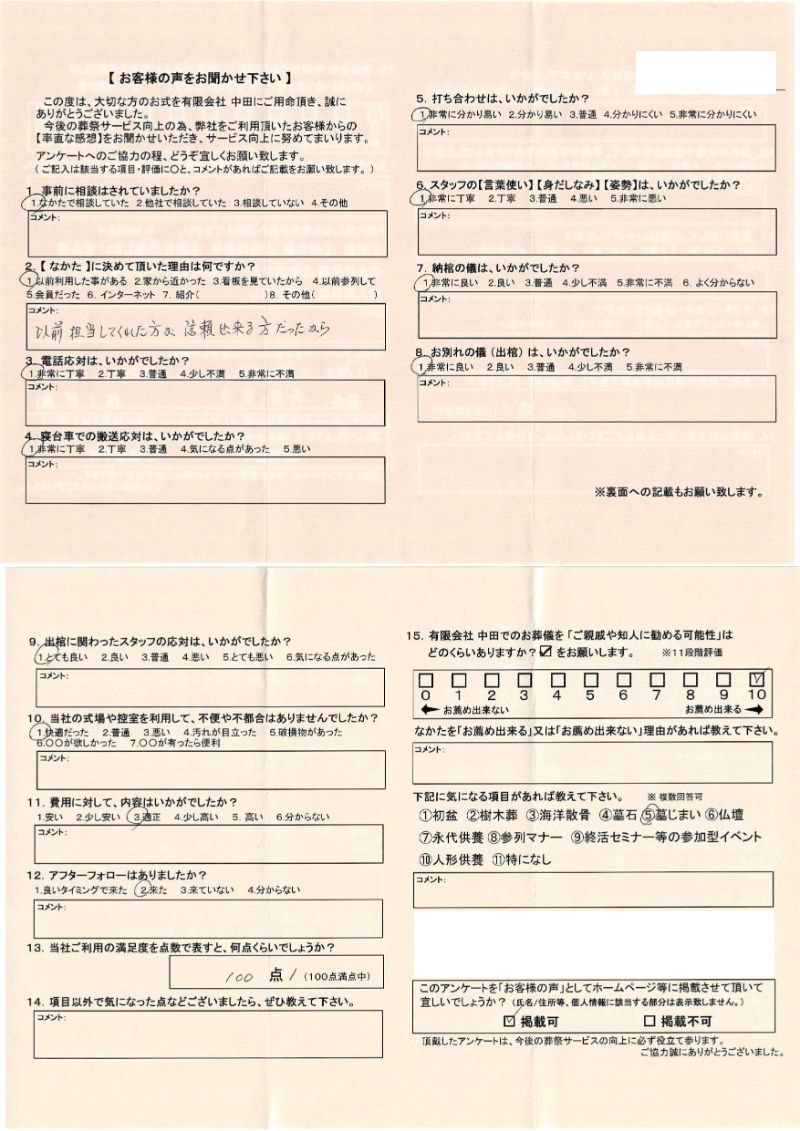 【 お客様の声をお聞かせ下さい 】
この度は、大切な方のお式を有限会社 中田にご用命頂き、誠に
ありがとうございました。
今後の葬祭サービス向上の為、弊社をご利用頂いたお客様からの
【率直な感想】をお聞かせいただき、サービス向上に努めてまいります。
アンケートへのご協力の程、どうぞ宜しくお願い致します。
( ご記入は該当する項目・評価に○と、コメントがあればご記載をお願い致します。)
1. 事前に相談はされていましたか?
1.なかたで相談していた 2.他社で相談していた 3.相談していない 4.その他
コメント:
2.【 なかた 】に決めて頂いた理由は何ですか?
1.以前利用した事がある 2.家から近かった 3.看板を見ていたから 4.以前参列して
5.会員だった 6. インターネット 7. 紹介( )8. その他( )
コメント:
以前担当してくれた方が信頼出来る方だったから
3. 電話応対は、いかがでしたか?
1.非常に丁寧 2.丁寧 3.普通 4.少し不満 5.非常に不満
コメント:
4. 寝台車での搬送応対は、いかがでしたか?
1.非常に丁寧 2.丁寧 3.普通 4.気になる点があった 5.悪い
コメント:
5. 打ち合わせは、いかがでしたか?
1.非常に分かり易い 2.分かり易い 3.普通 4.分かりにくい 5.非常に分かりにくい
コメント:
6. スタッフの【言葉使い】【身だしなみ】【姿勢】は、いかがでしたか?
1.非常に丁寧 2.丁寧 3.普通 4.悪い 5.非常に悪い
コメント:
7. 納棺の儀は、いかがでしたか?
1.非常に良い 2.良い 3.普通 4.少し不満 5.非常に不満 6. よく分からない
コメント:
8. お別れの儀(出棺)は、いかがでしたか?
1.非常に良い 2.良い 3.普通 4.少し不満 5.非常に不満
コメント:
※裏面への記載もお願い致します。
9. 出棺に関わったスタッフの応対は、いかがでしたか?
1.とても良い 2.良い 3.普通 4.悪い 5.とても悪い 6.気になる点があった
コメント:
10. 当社の式場や控室を利用して、不便や不都合はありませんでしたか?
1.快適だった 2.普通 3.悪い 4.汚れが目立った 5.破損物があった
6.○○が欲しかった 7.○○が有ったら便利
コメント:
11. 費用に対して、内容はいかがでしたか?
1.安い 2.少し安い 3.適正 4.少し高い 5. 高い 6.分からない
コメント:
12. アフターフォローはありましたか?
1.良いタイミングで来た 2.来た 3.来ていない 4.分からない
コメント:
13. 当社ご利用の満足度を点数で表すと、何点くらいでしょうか?
100 点 / (100点満点中)
14. 項目以外で気になった点などございましたら、ぜひ教えて下さい。
コメント:
15. 有限会社 中田でのお葬儀を「ご親戚や知人に勧める可能性」は
どのくらいありますか?☑をお願いします。 ※11段階評価
0 1 2 3 4 5 6 7 8 9 10
お薦め出来ない お薦め出来る
なかたを「お薦め出来る」又は「お薦め出来ない」理由があれば教えて下さい。
コメント:
下記に気になる項目があれば教えて下さい。 ※ 複数回答可
①初盆 ②樹木葬 ③海洋散骨 ④墓石 ⑤墓じまい ⑥仏壇
⑦永代供養 ⑧参列マナー ⑨終活セミナー等の参加型イベント
⑩人形供養 ⑪特になし
コメント:
このアンケートを「お客様の声」としてホームページ等に掲載させて頂いて
宜しいでしょうか?(氏名/住所等、個人情報に該当する部分は表示致しません。)
☑ 掲載可 □ 掲載不可
頂戴したアンケートは、今後の葬祭サービスの向上に必ず役立て参ります。
ご協力誠にありがとうございました。